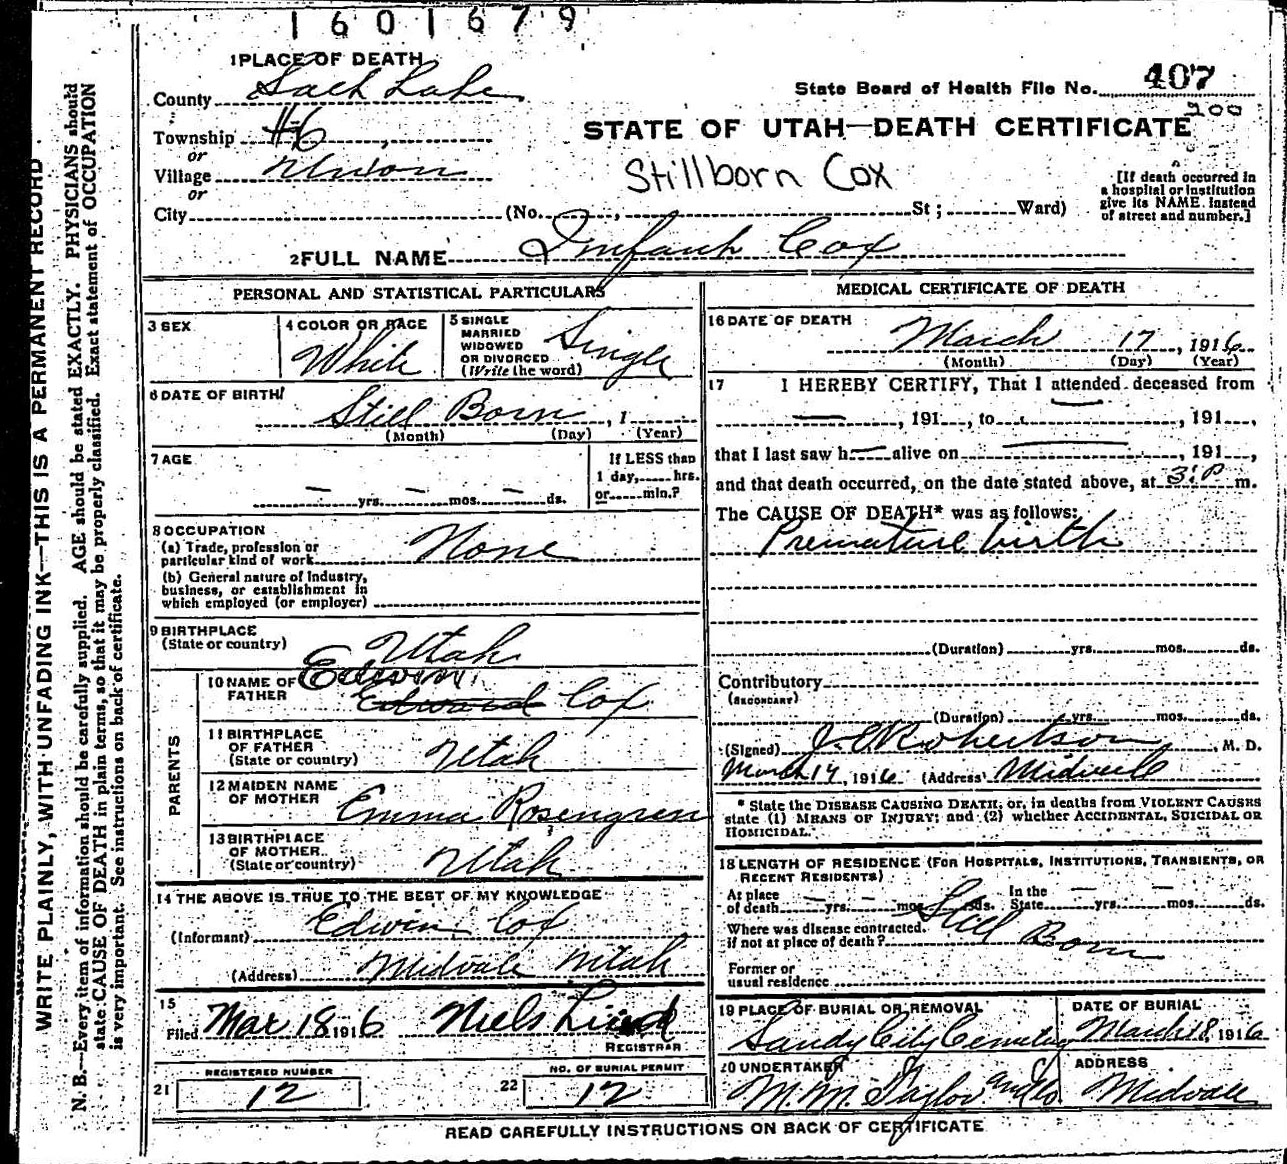 1601679
1 PLACE OF DEATH
County Salt Lake
State Board of Health File No. 407
200
Township #6
or
STATE OF UTAH—DEATH CERTIFICATE
Village Union
or
Stillborn Cox
[If death occurred in
a hospital or institution
give its NAME instead
of street and number.]
City (No. , St ; Ward)
2 FULL NAME Infant Cox
PERSONAL AND STATISTICAL PARTICULARS
3 SEX
4 COLOR OR RACE
White
5 SINGLE
MARRIED
WIDOWED
OR DIVORCED
(Write the word)
Single
6 DATE OF BIRTH
Still Born , 1
(Month) (Day) (Year)
7 AGE
— yrs. — mos. — ds.
If LESS than
1 day, hrs.
or min.?
8 OCCUPATION
(a) Trade, profession or
particular kind of work None
(b) General nature of Industry,
business, or establishment in
which employed (or employer)
9 BIRTHPLACE
(State or country) Utah
PARENTS
10 NAME OF
FATHER
Edwin
Edward Cox
11 BIRTHPLACE
OF FATHER
(State or country) Utah
12 MAIDEN NAME
OF MOTHER Emma Rosengren
13 BIRTHPLACE
OF MOTHER
(State or country) Utah
14 THE ABOVE IS TRUE TO THE BEST OF MY KNOWLEDGE
(Informant) Edwin Cox
(Address) Midvale Utah
15
Filed Mar 18 1916 Niels Lind
REGISTRAR
REGISTERED NUMBER
21 12
NO. OF BURIAL PERMIT
22 12
MEDICAL CERTIFICATE OF DEATH
16 DATE OF DEATH
March 17, 1916
(Month) (Day) (Year)
17 I HEREBY CERTIFY, That I attended deceased from
—, 191 , to , 191 ,
that I last saw h— alive on — , 191 ,
and that death occurred, on the date stated above, at 3:P m.
The CAUSE OF DEATH* was as follows:
Premature birth
(Duration) yrs. mos. ds.
Contributory
(SECONDARY)
(Duration) yrs. mos. ds.
(Signed) J C Robertson, M. D.
March 17, 1916 (Address) Midvale
* State the DISEASE CAUSING DEATH; or, in deaths from VIOLENT CAUSES
state (1) MEANS OF INJURY; and (2) whether ACCIDENTAL, SUICIDAL OR
HOMICIDAL.
18 LENGTH OF RESIDENCE (FOR HOSPITALS, INSTITUTIONS, TRANSIENTS, OR
RECENT RESIDENTS)
At place
of death — yrs. — mos. ds.
In the
State — yrs. — mos. ds.
Where was disease contracted,
if not at place of death? Still Born
Former or
usual residence
19 PLACE OF BURIAL OR REMOVAL
Sandy City Cemetery
DATE OF BURIAL
March 18, 1916
20 UNDERTAKER
M. M. Taylor and Co
ADDRESS
Midvale
READ CAREFULLY INSTRUCTIONS ON BACK OF CERTIFICATE
WRITE PLAINLY, WITH UNFADING INK—THIS IS A PERMANENT RECORD
N. B.—Every item of information should be carefully supplied. AGE should be stated EXACTLY. PHYSICIANS should
state CAUSE OF DEATH in plain terms, so that it may be properly classified. Exact statement of OCCUPATION
is very important. See instructions on back of certificate.